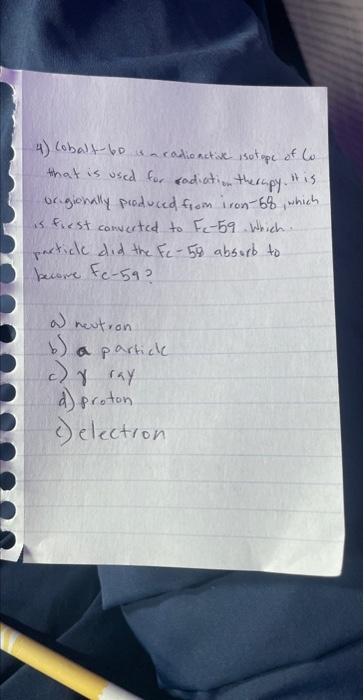 4) Cobalt-60 is a radioactive isotope of Co
that is used for radiation therapy. It is
origionally produced from iron-58, which
is first converted to Fe-59. Which
particle did the Fe-58 absorb to
become Fe-59?
a) neutron
b) a particle
c) γ ray
d) proton
e) electron